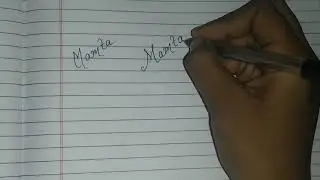 Mamta Mamta